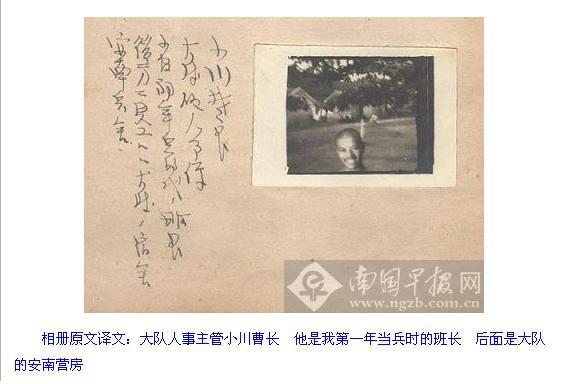 小川曹長
大隊人事係
初年兵時代ノ班長
後方ニ見エルハ大隊ノ宿舎
安南兵舎
南国早报网
www.ngzb.com.cn
相册原文译文：大队人事主管小川曹长　他是我第一年当兵时的班长　后面是大队
的安南营房